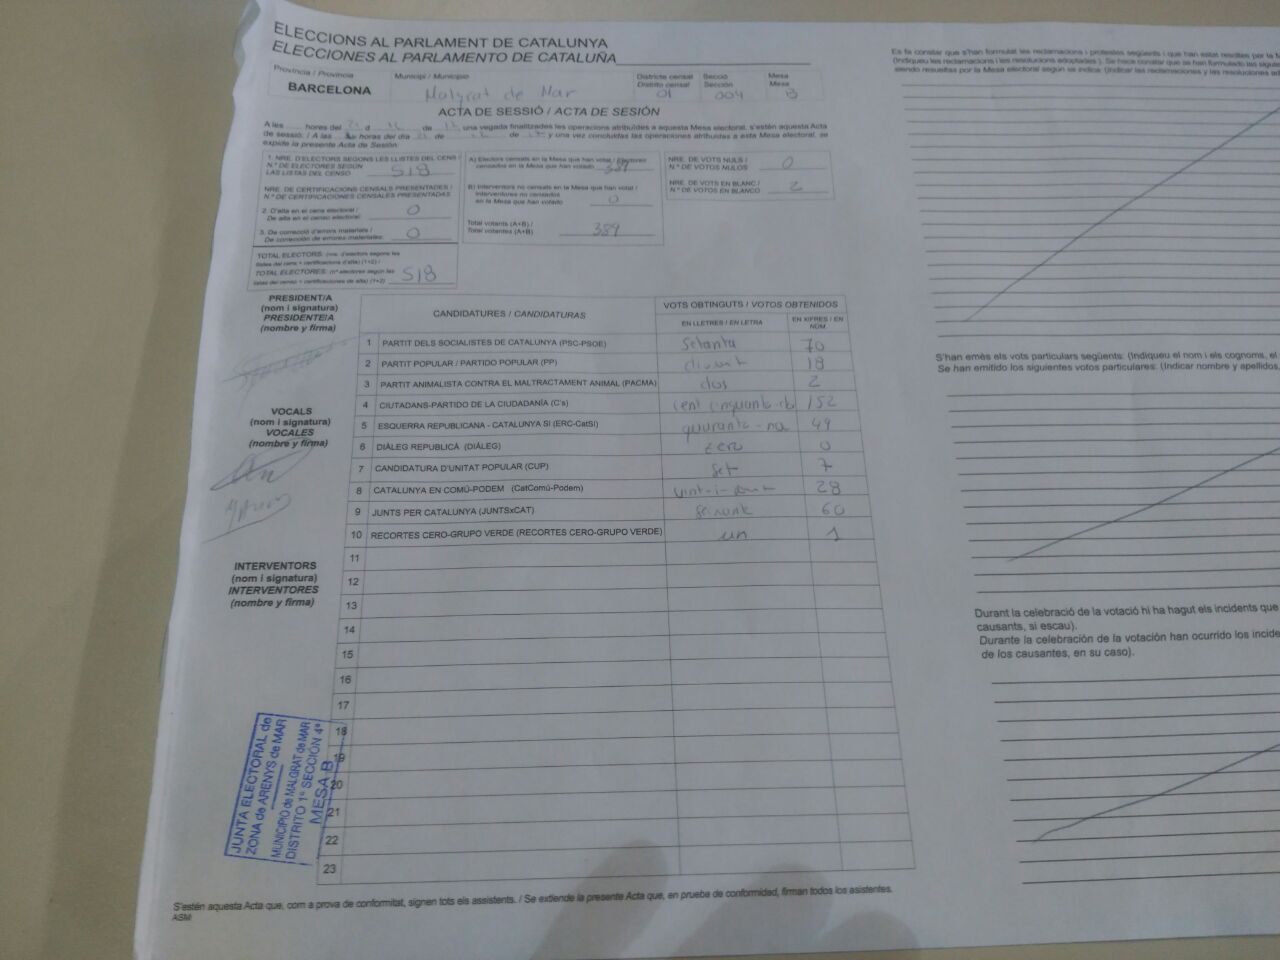 ELECCIONS AL PARLAMENT DE CATALUNYA
ELECCIONES AL PARLAMENTO DE CATALUÑA
Província / Provincia
BARCELONA
Municipi / Municipio
Malgrat de Mar
Districte censal
Distrito censal
01
Secció
Sección
004
Mesa
Mesa
B
ACTA DE SESSIÓ / ACTA DE SESIÓN
A les hores del d de una vegada finalitzades les operacions atribuïdes a aquesta Mesa electoral, s'estén aquesta Acta
de sessió. / A las horas del día de de y una vez concluidas las operaciones atribuidas a esta Mesa electoral, se
expide la presente Acta de Sesión.
1. NRE. D'ELECTORS SEGONS LES LLISTES DEL CENS /
N.º DE ELECTORES SEGÚN
LAS LISTAS DEL CENSO 518
NRE. DE CERTIFICACIONS CENSALS PRESENTADES /
N.º DE CERTIFICACIONES CENSALES PRESENTADAS
2. D'alta en el cens electoral /
De alta en el censo electoral: 0
3. De correcció d'errors materials /
De corrección de errores materiales: 0
TOTAL ELECTORS: (nre. d'electors segons les
llistes del cens + certificacions d'alta) (1+2) /
TOTAL ELECTORES: (nº electores según las
listas del censo + certificaciones de alta) (1+2) 518
A) Electors censats en la Mesa que han votat / Electores
censados en la Mesa que han votado 389
B) Interventors no censats en la Mesa que han votat /
Interventores no censados
en la Mesa que han votado 0
Total votants (A+B) /
Total votantes (A+B) 389
NRE. DE VOTS NULS /
N.º DE VOTOS NULOS 0
NRE. DE VOTS EN BLANC /
N.º DE VOTOS EN BLANCO 2
PRESIDENT/A
(nom i signatura)
PRESIDENTE/A
(nombre y firma)
VOCALS
(nom i signatura)
VOCALES
(nombre y firma)
INTERVENTORS
(nom i signatura)
INTERVENTORES
(nombre y firma)
CANDIDATURES / CANDIDATURAS
VOTS OBTINGUTS / VOTOS OBTENIDOS
EN LLETRES / EN LETRA
EN XIFRES / EN NÚM.
1 PARTIT DELS SOCIALISTES DE CATALUNYA (PSC-PSOE) Setanta 70
2 PARTIT POPULAR / PARTIDO POPULAR (PP) divuit 18
3 PARTIT ANIMALISTA CONTRA EL MALTRACTAMENT ANIMAL (PACMA) dos 2
4 CIUTADANS-PARTIDO DE LA CIUDADANÍA (C's) cent cinquanta-dos 152
5 ESQUERRA REPUBLICANA - CATALUNYA SÍ (ERC-CatSí) quaranta-nou 49
6 DIÀLEG REPUBLICÀ (DIÀLEG) zero 0
7 CANDIDATURA D'UNITAT POPULAR (CUP) set 7
8 CATALUNYA EN COMÚ-PODEM (CatComú-Podem) vint-i-vuit 28
9 JUNTS PER CATALUNYA (JUNTSxCAT) 60
10 RECORTES CERO-GRUPO VERDE (RECORTES CERO-GRUPO VERDE) un 1
11
12
13
14
15
16
17
18
19
20
21
22
23
JUNTA ELECTORAL de
ZONA de ARENYS de MAR
MUNICIPIO de MALGRAT de MAR
DISTRITO 1º SECCIÓN 4ª
MESA B
S'estén aquesta Acta que, com a prova de conformitat, signen tots els assistents. / Se extiende la presente Acta que, en prueba de conformidad, firman todos los asistentes.
ASM
Es fa constar que s'han formulat les reclamacions i protestes següents i que han estat resoltes per la
(Indiqueu les reclamacions i les resolucions adoptades). Se hace constar que se han formulado las
siendo resueltas por la Mesa electoral según se indica: (Indicar las reclamaciones y las resoluciones
S'han emès els vots particulars següents: (Indiqueu el nom i els cognoms, el
Se han emitido los siguientes votos particulares: (Indicar nombre y apellidos,
Durant la celebració de la votació hi ha hagut els incidents que
causants, si escau).
Durante la celebración de la votación han ocurrido los
de los causantes, en su caso).